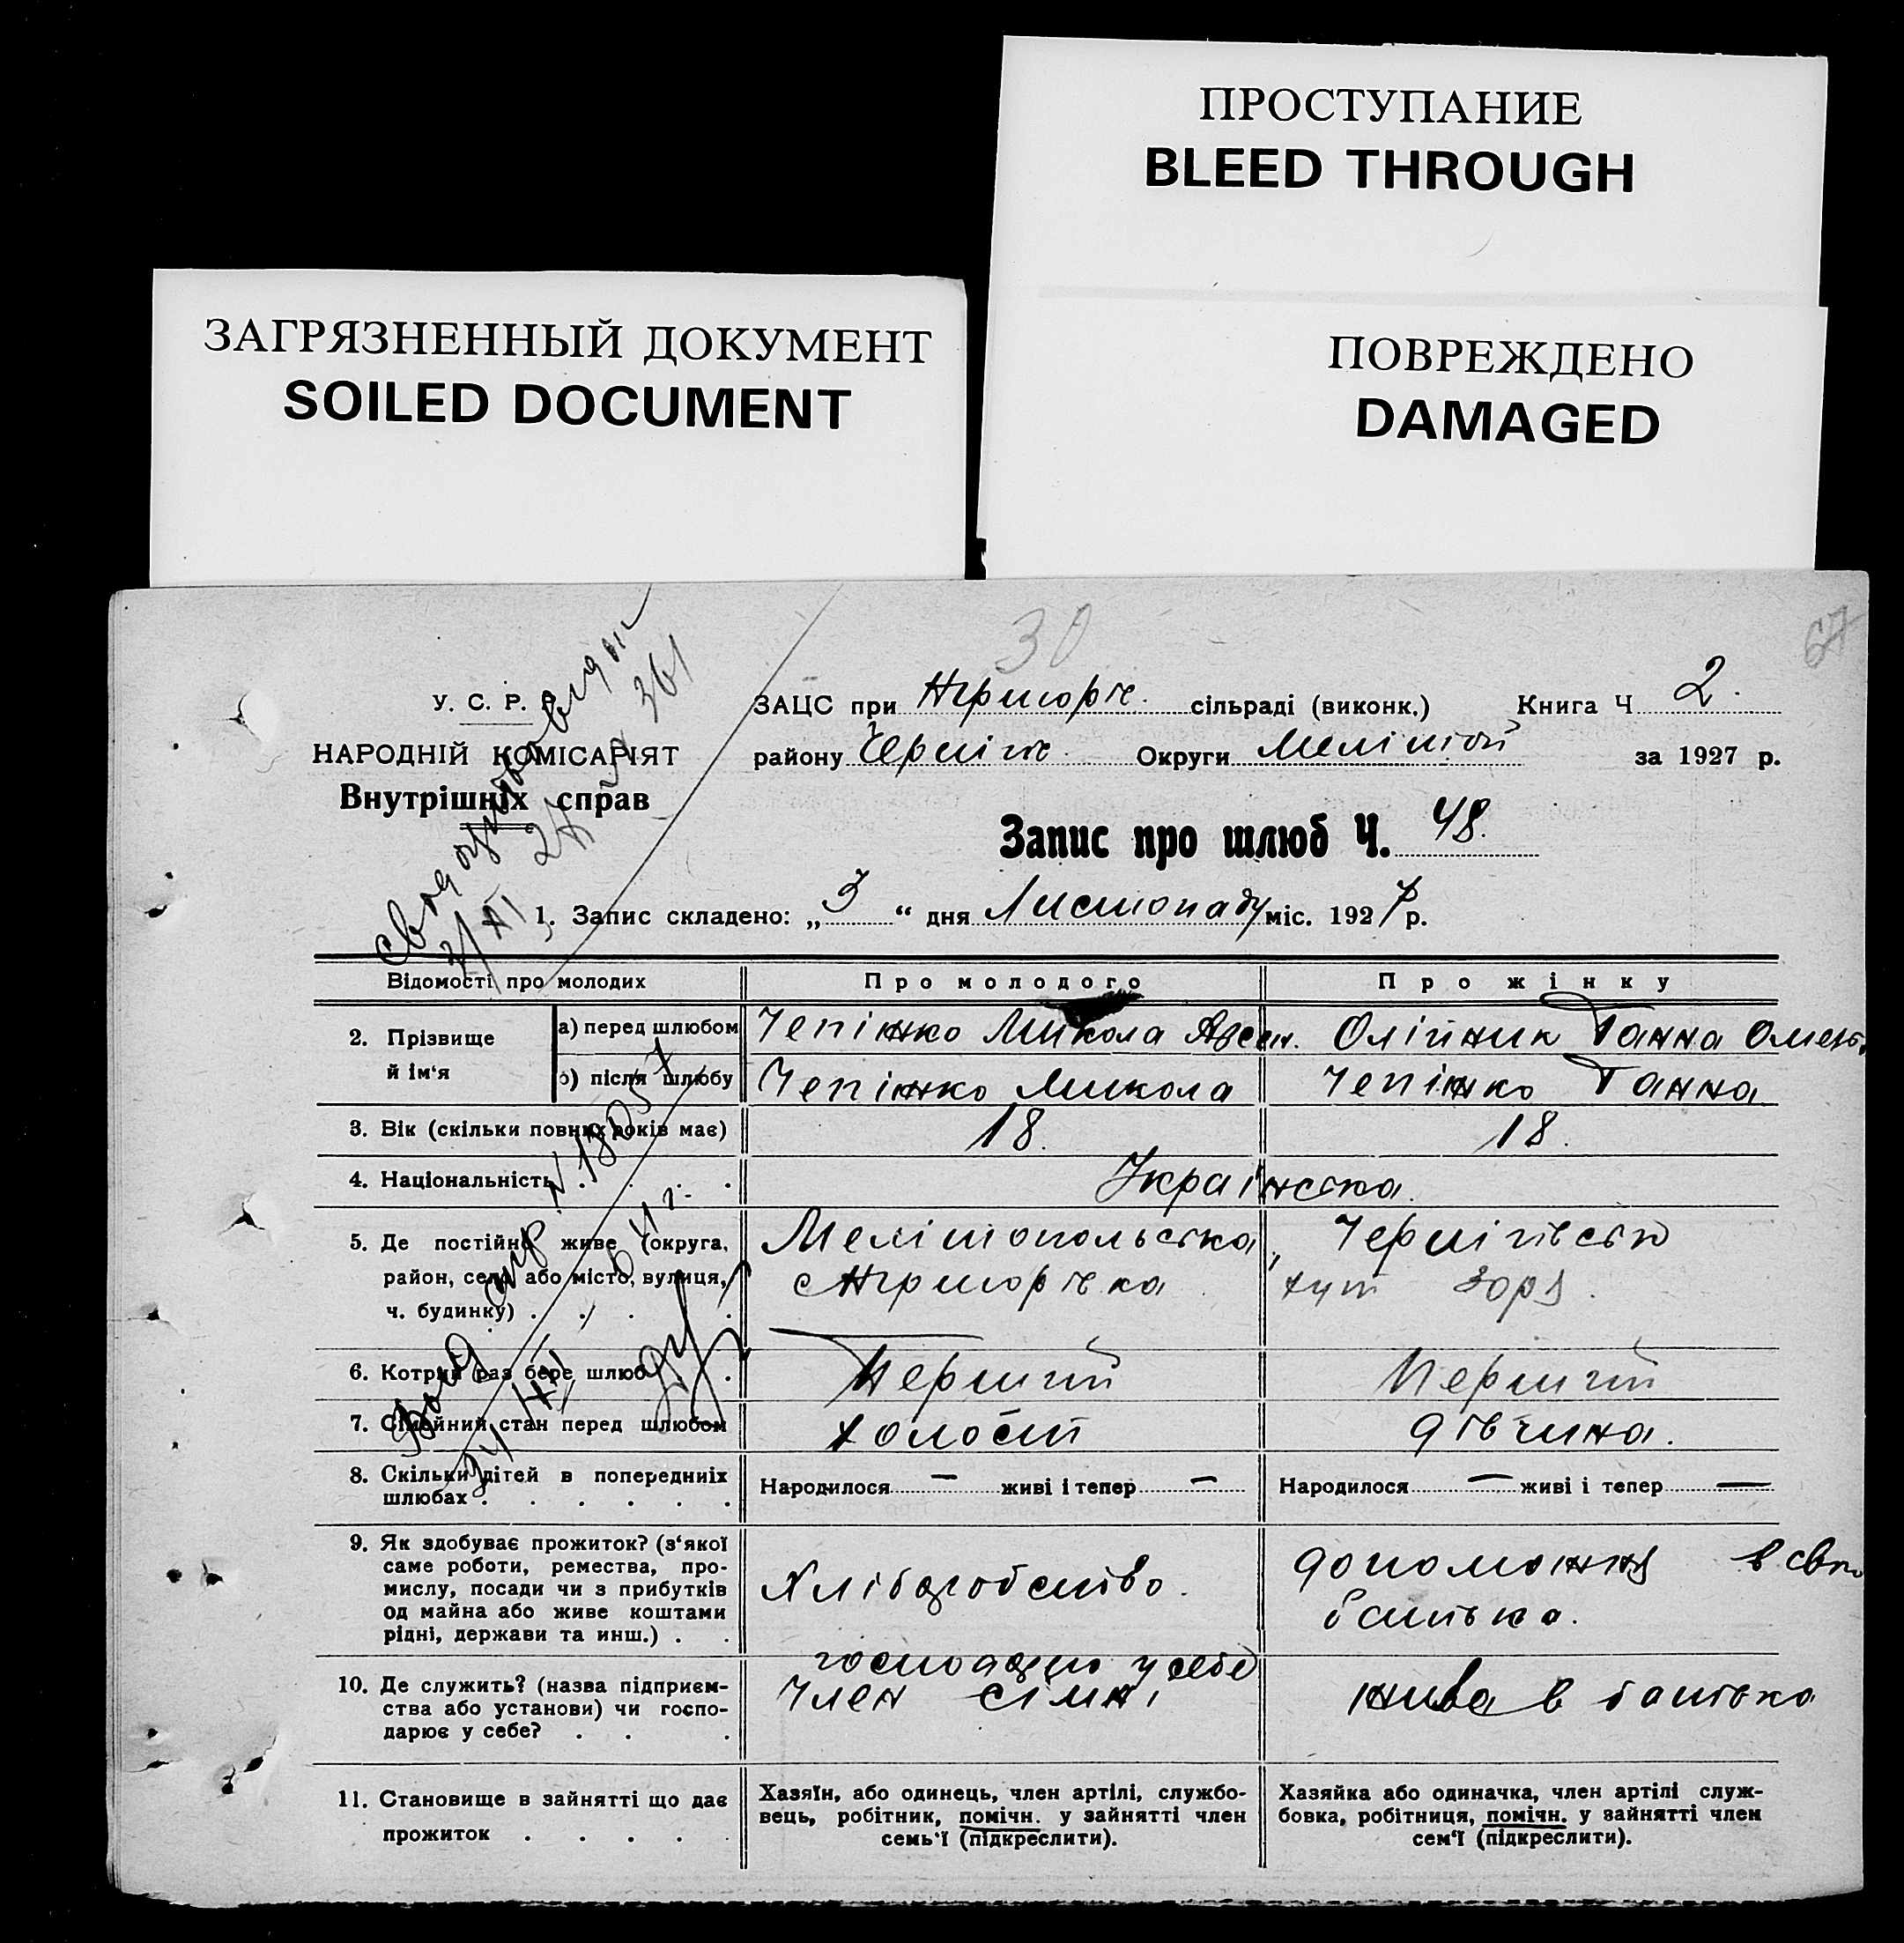 ПРОСТУПАНИЕ
BLEED THROUGH
ЗАГРЯЗНЕННЫЙ ДОКУМЕНТ
SOILED DOCUMENT
ПОВРЕЖДЕНО
DAMAGED
30
67
У. С. Р. Р.
НАРОДНІЙ КОМІСАРІЯТ
Внутрішніх справ
361
ЗАЦС при сільраді (виконк.) Книга Ч 2.
району Черніг Округи Меліт за 1927 р.
Запис про шлюб Ч. 48.
1. Запис складено: „ 3 “ дня Листопаду міс. 1927 р.
Відомості про молодих
Про молодого
Про жінку
2. Прізвище й ім‘я
а) перед шлюбом
Чепінко Микола Олійник Ганна
б) після шлюбу
Чепінко Микола Чепінко Ганна
3. Вік (скільки повних років має)
18. 18.
4. Національність . . . .
Українська
5. Де постійно живе (округа,
район, село або місто, вулиця,
ч. будинку) . . . .
Мелітопольська, Чернігівсько
хут Зоря.
6. Котрий раз бере шлюб .
Перший Перший
7. Сімейний стан перед шлюбом
холост дівчина.
8. Скільки дітей в попередниіх
шлюбах . . . . . . .
Народилося — живі і тепер —
Народилося — живі і тепер —
9. Як здобуває прожиток? (з‘якої
саме роботи, ремества, про-
мислу, посади чи з прибутків
од майна або живе коштами
рідні, держави та инш.) . .
Хліборобство.
допомання в
батька.
10. Де служить? (назва підприєм-
ства або установи) чи госпо-
дарює у себе? . . .
у себе
Член сімні
в батька
11. Становище в зайнятті що дає
прожиток . . . . .
Хазяїн, або одинець, член артілі, службо-
вець, робітник, помічн. у зайнятті член
семь‘ї (підкреслити).
Хазяйка або одиначка, член артілі служ-
бовка, робітниця, помічн. у зайнятті член
сем‘ї (підкреслити).